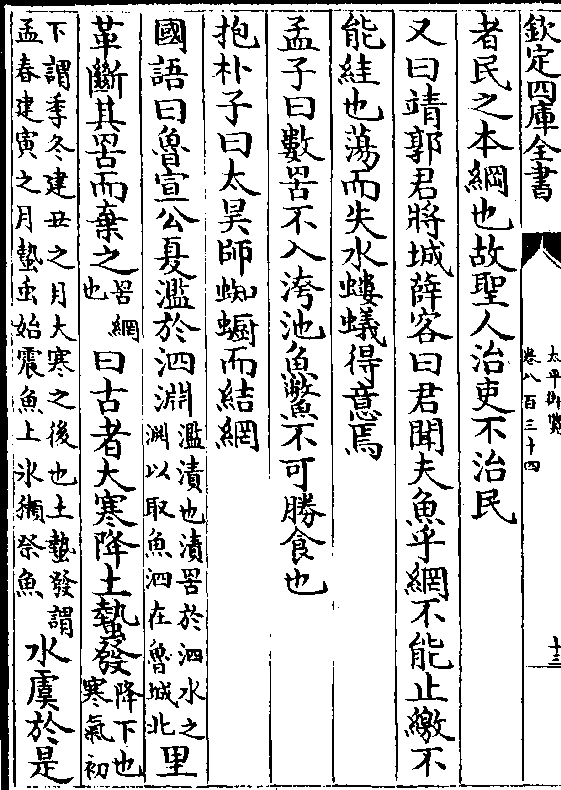 欽定四庫全書
太平御覽
卷八百三十四
十三
者民之本綱也故聖人治吏不治民
又曰靖郭君將城薛客曰君聞夫魚乎網不能止繳不
能絓也蕩而失水螻蟻得意焉
孟子曰數罟不入洿池魚鼈不可勝食也
抱朴子曰太昊師蜘蟵而結網
國語曰魯宣公夏濫於泗淵濫漬也漬罟於泗水之淵以取魚泗在魯城北里
革斷其罟而棄之罟網也曰古者大寒降土蟄發降下也寒氣初
下謂季冬建丑之月大寒之後也土蟄發謂孟春建寅之月蟄虫始震魚上氷獺祭魚水虞於是